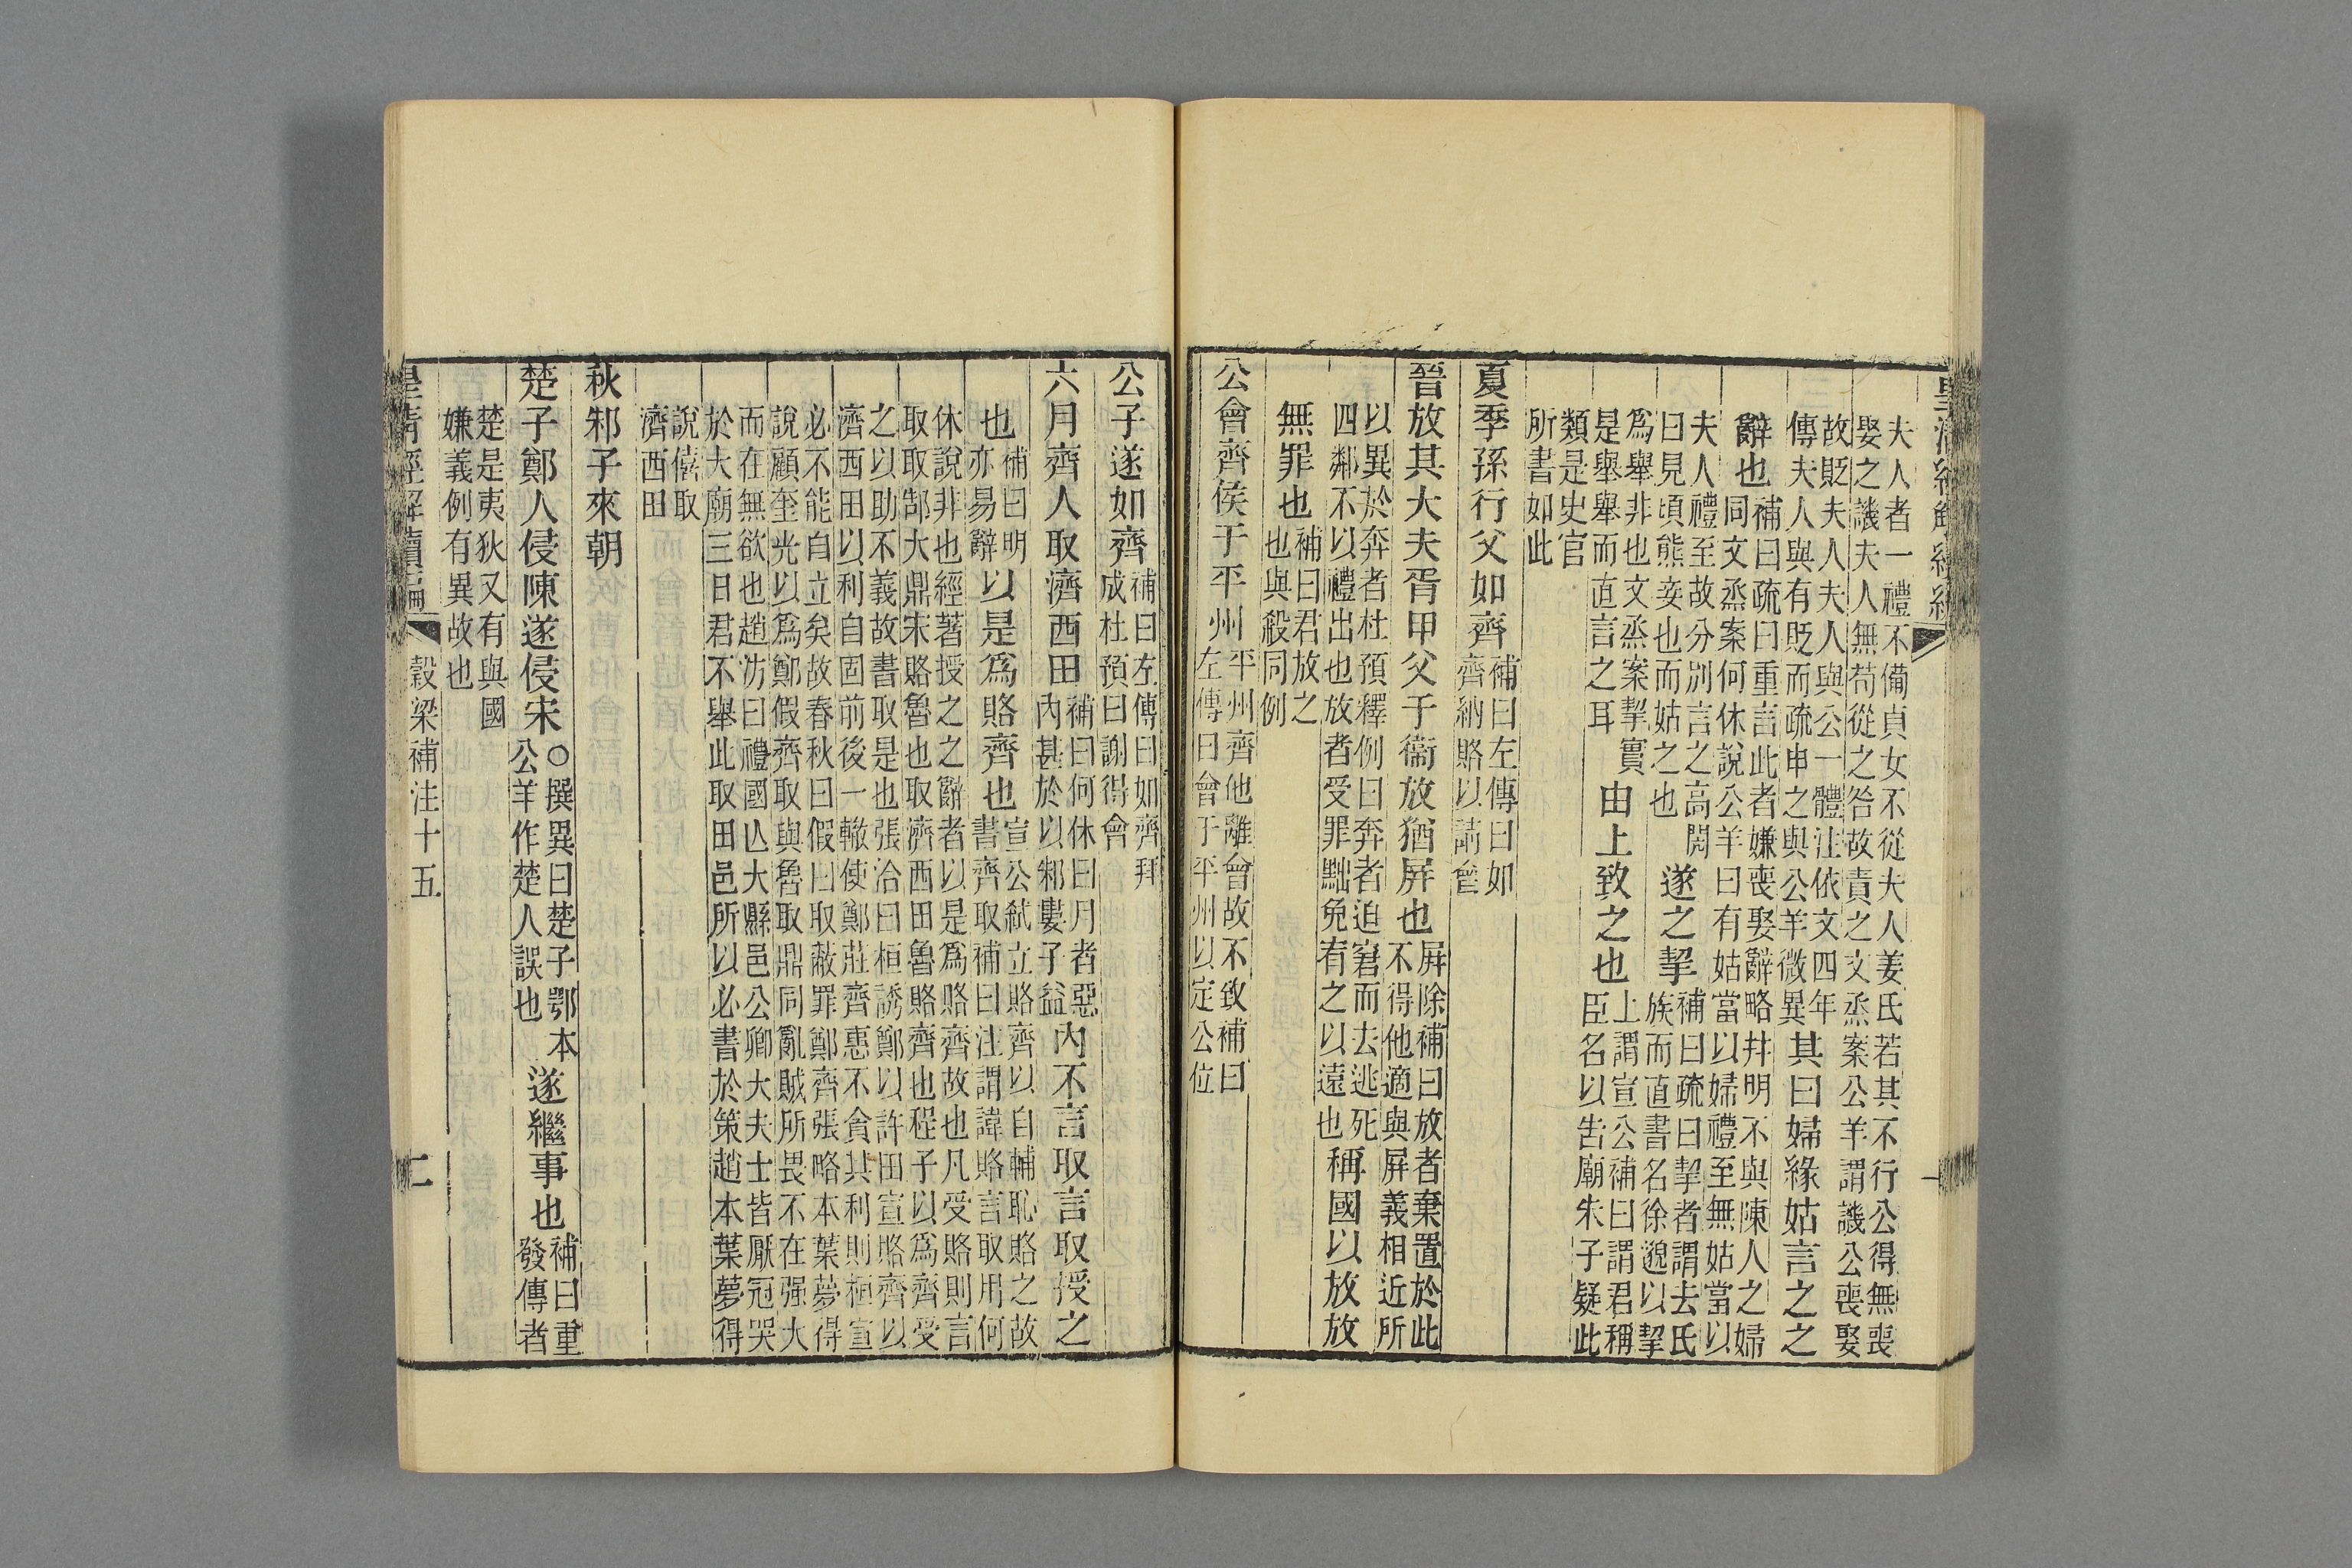 夫人者一禮不備貞女不從夫人姜氏若其不行公得無喪
娶之譏夫人無苟從之咎故責之文烝案公羊謂譏公喪娶
故貶夫人夫人與公一體注依文四年
傳夫人與有貶而疏申之與公羊微異
其曰婦緣姑言之之
辭也
補曰疏曰重言此者嫌喪娶辭略幷明不與陳人之婦
同文烝案何休說公羊曰有姑當以婦禮至無姑當以
夫人禮至故分別言之高閌
曰見頃熊妾也而姑之之也
遂之挈
補曰疏曰挈者謂去氏
族而直書名徐邈以挈
爲舉非也文烝案挈實
是舉舉而直言之耳
由上致之也
上謂宣公補曰謂君稱
臣名以告廟朱子疑此
類是史官
所書如此
夏季孫行父如齊
補曰左傳曰如
齊納賂以請會
晉放其大夫胥甲父于衞放猶屏也
屏除補曰放者棄置於此
不得他適與屏義相近所
以異於奔者杜預釋例曰奔者迫窘而去逃死
四鄰不以禮出也放者受罪黜免宥之以遠也
稱國以放放
無罪也
補曰君放之
也與殺同例
公會齊侯于平州
平州齊他離會故不致補曰
左傳曰會于平州以定公位
公子遂如齊
補曰左傳曰如齊拜
成杜預曰謝得會
六月齊人取濟西田
補曰何休曰月者惡
內甚於以邾婁子益
內不言取言取授之
也
補曰明
亦易辭
以是爲賂齊也
宣公弒立賂齊以自輔恥賂之故
書齊取補曰注謂諱賂言取用何
休說非也經著授之之辭者以是爲賂齊故也凡受賂則言
取取郜大鼎宋賂魯也取濟西田魯賂齊也程子以爲齊受
之以助不義故書取是也張洽曰桓誘鄭以許田宣賂齊以
濟西田以利自固前後一轍使鄭莊齊惠不貪其利則桓宣
必不能自立矣故春秋曰假曰取蔽罪鄭齊張略本葉夢得
說顧奎光以爲鄭假齊取與魯取鼎同亂賊所畏不在强大
而在無欲也趙汸曰禮國亾大縣邑公卿大夫士皆厭冠哭
於大廟三日君不舉此取田邑所以必書於策趙本葉夢得
說僖取
濟西田
秋邾子來朝
楚子鄭人侵陳遂侵宋
○撰異曰楚子鄂本
公羊作楚人誤也
遂繼事也
補曰重
發傳者
楚是夷狄又有與國
嫌義例有異故也
皇清經解續編
穀梁補注十五
二